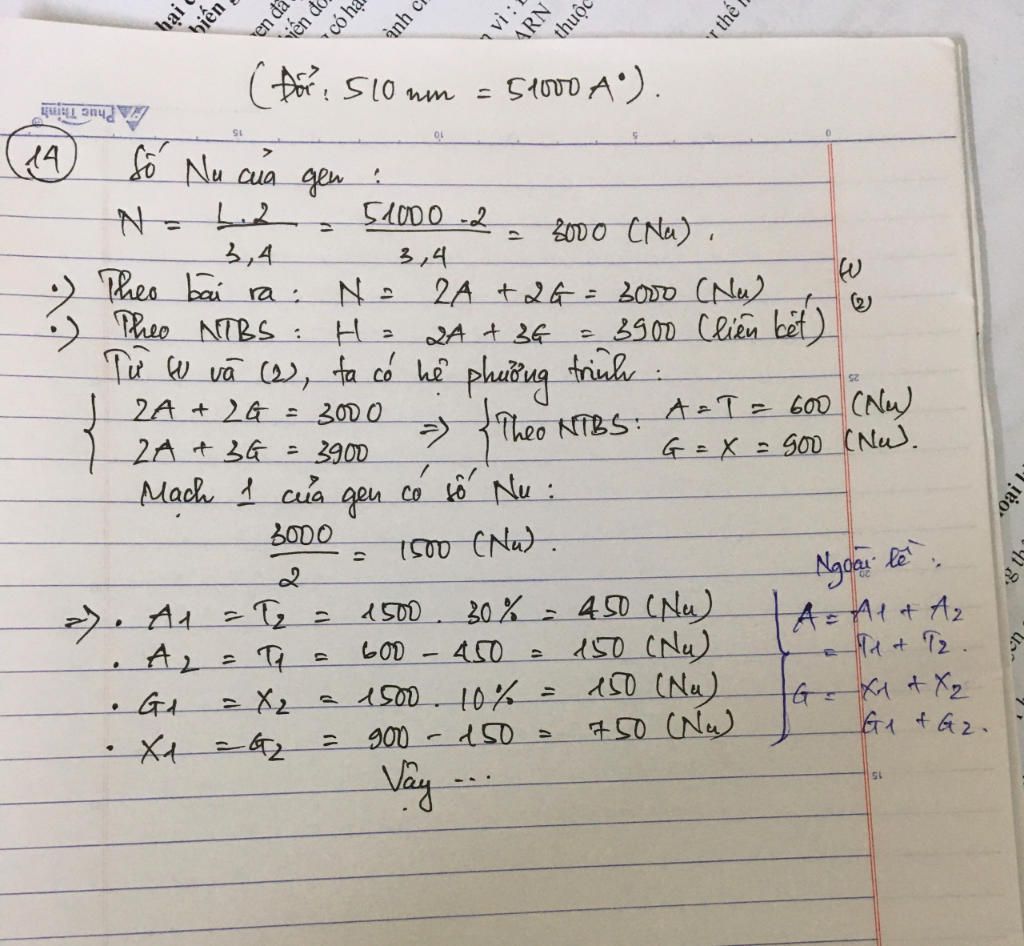 hại c
biến g
gen đã
biến đổi
g có hại
ành ch
n vị :
ARN
thuộc
ư thế
(Đổi : 510 nm = 51000 A°).
Phuc Thinh
15 10 5 0
14 Số Nu của gen :
N = L.2 / 3,4 = 51000 . 2 / 3,4 = 3000 (Nu).
•) Theo bài ra : N = 2A + 2G = 3000 (Nu) (1)
•) Theo NTBS : H = 2A + 3G = 3900 (liên kết) (2)
Từ (1) và (2), ta có hệ phường trình :
25
{ 2A + 2G = 3000
2A + 3G = 3900
=> { Theo NTBS : A = T = 600 (Nu)
G = X = 900 (Nu).
Mạch 1 của gen có số Nu :
3000 / 2 = 1500 (Nu).
20
Ngoài lề :
=> . A1 = T2 = 1500 . 30% = 450 (Nu)
. A2 = T1 = 600 - 450 = 150 (Nu)
. G1 = X2 = 1500 . 10% = 150 (Nu)
. X1 = G2 = 900 - 150 = 750 (Nu)
A = A1 + A2
= T1 + T2.
G = X1 + X2
G1 + G2.
Vậy ...
15
oại
g th